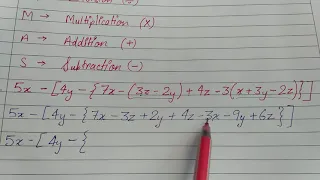 M → Multiplication (×)
A → Addition (+)
S → Subtraction (-)
5x - [4y - {7x - (3z - 2y) + 4z - 3(x + 3y - 2z)}]
5x - [4y - {7x - 3z + 2y + 4z - 3x - 9y + 6z}]
5x - [4y - {